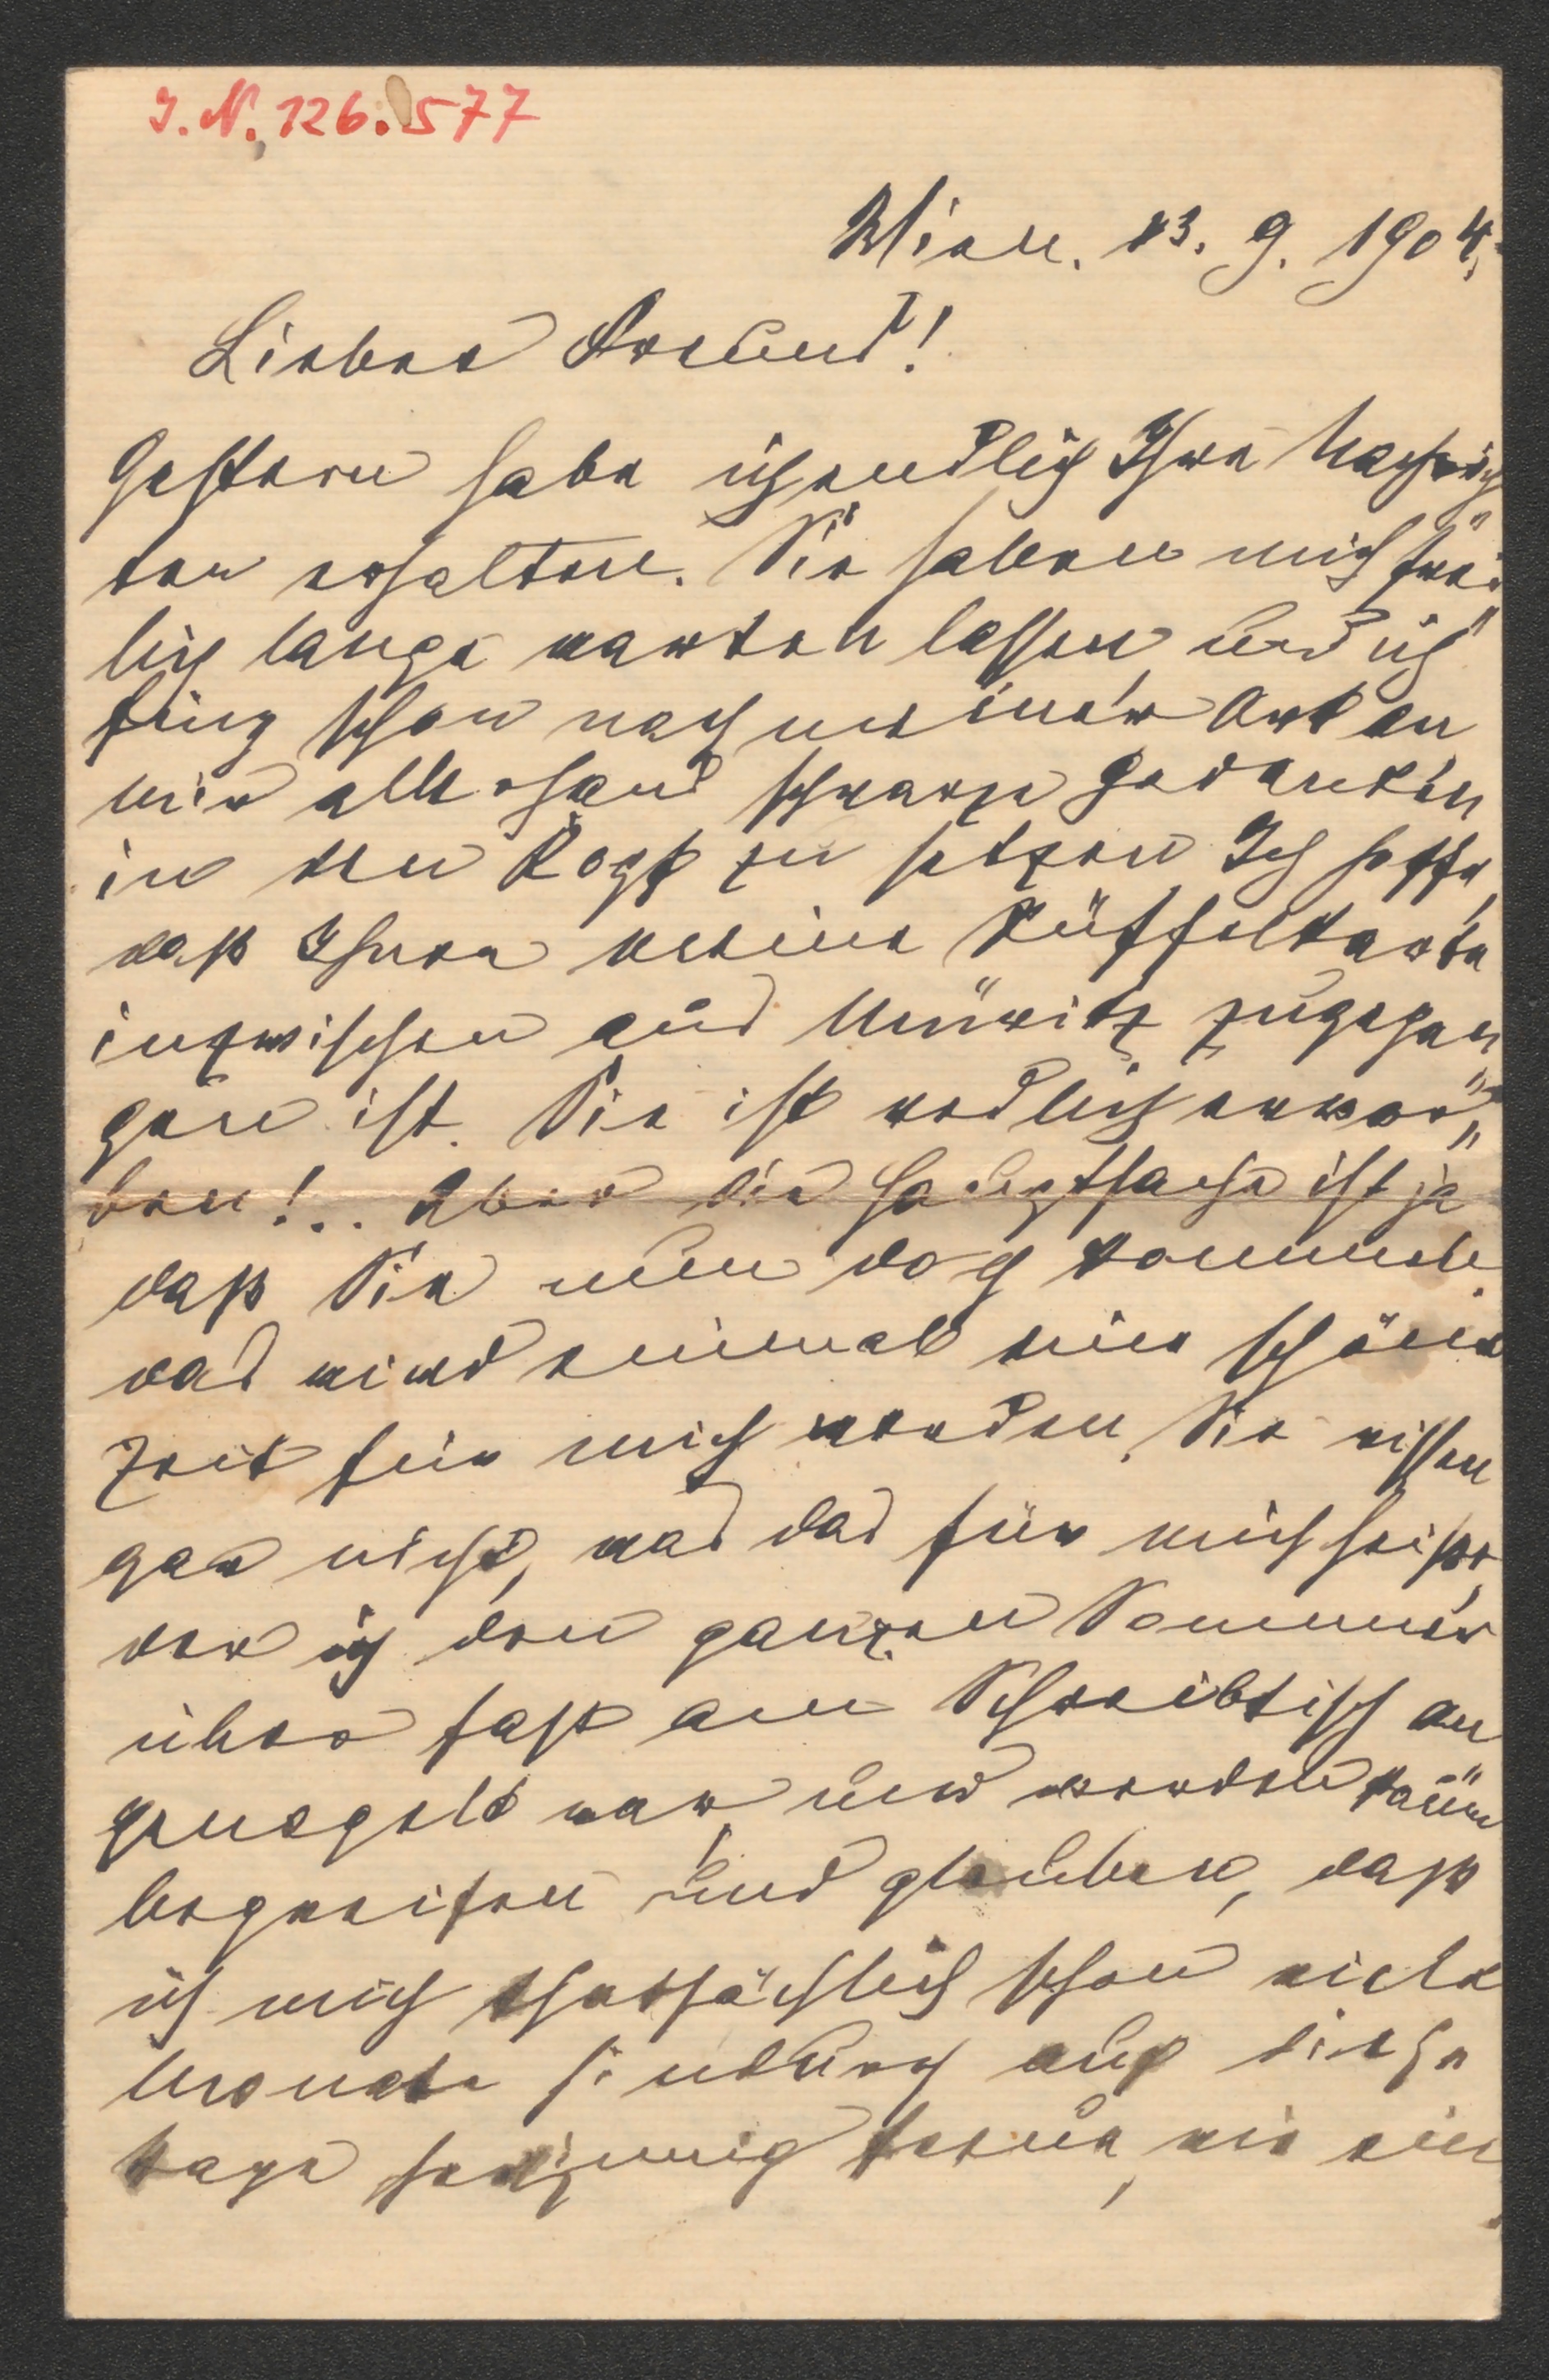 J. N. 126.577
Wien. 13. 9. 1904.
Lieber Freund!
Gestern habe ich endlich Ihre Nachrich„
ten erhalten. Sie haben mich frei„
lich lange warten lassen und ich
fing schon nach meiner Art an
mir allerhand schwarze Gedanken
in den Kopf zu setzen Ich hoffe,
daß Ihnen meine Rüffelkarte
inzwischen aus Müritz zugegan
gen ist. Sie ist redlich erwor„
ben!.. Aber die Hauptsache ist ja
daß Sie nun doch kommen.
das wird einmal eine schöne
Zeit für mich werden. Sie wissen
gar nicht, was das für mich heißt,
der ich den ganzen Sommer
über fast am Schreibtisch an
genagelt war, und werden kaum
begreifen und glauben, daß
ich mich thatsächlich schon viele
Monate hindurch auf diese
Tage herzinnig freue, wie ein